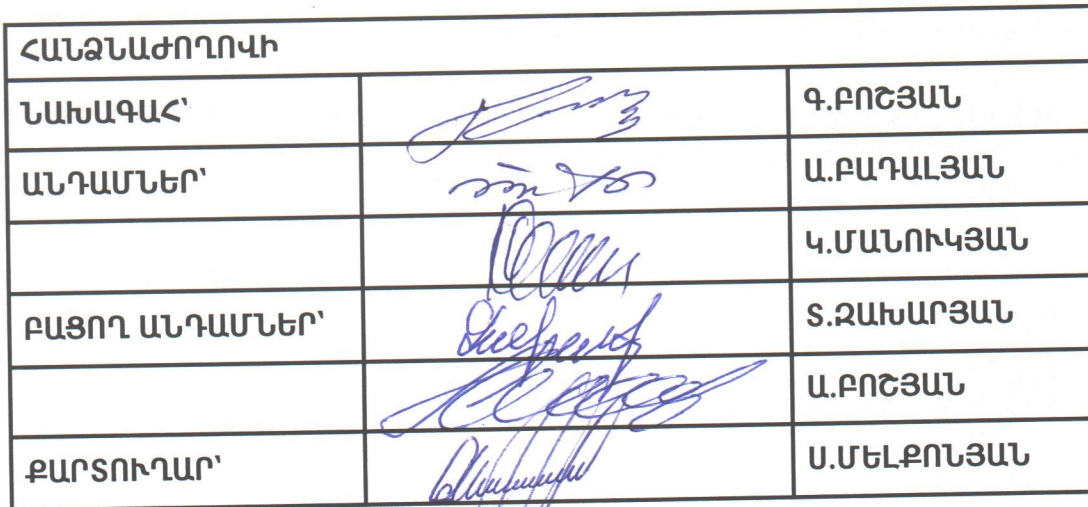 ՀԱՆՁՆԱԺՈՂՈՎԻ
ՆԱԽԱԳԱՀ՝ Գ.ԲՈՇՅԱՆ
ԱՆԴԱՄՆԵՐ՝ Ա.ԲԱԴԱԼՅԱՆ
Կ.ՄԱՆՈՒԿՅԱՆ
ԲԱՑՈՂ ԱՆԴԱՄՆԵՐ՝ Տ.ԶԱԽԱՐՅԱՆ
Ա.ԲՈՇՅԱՆ
ՔԱՐՏՈՒՂԱՐ՝ Ս.ՄԵԼՔՈՆՅԱՆ